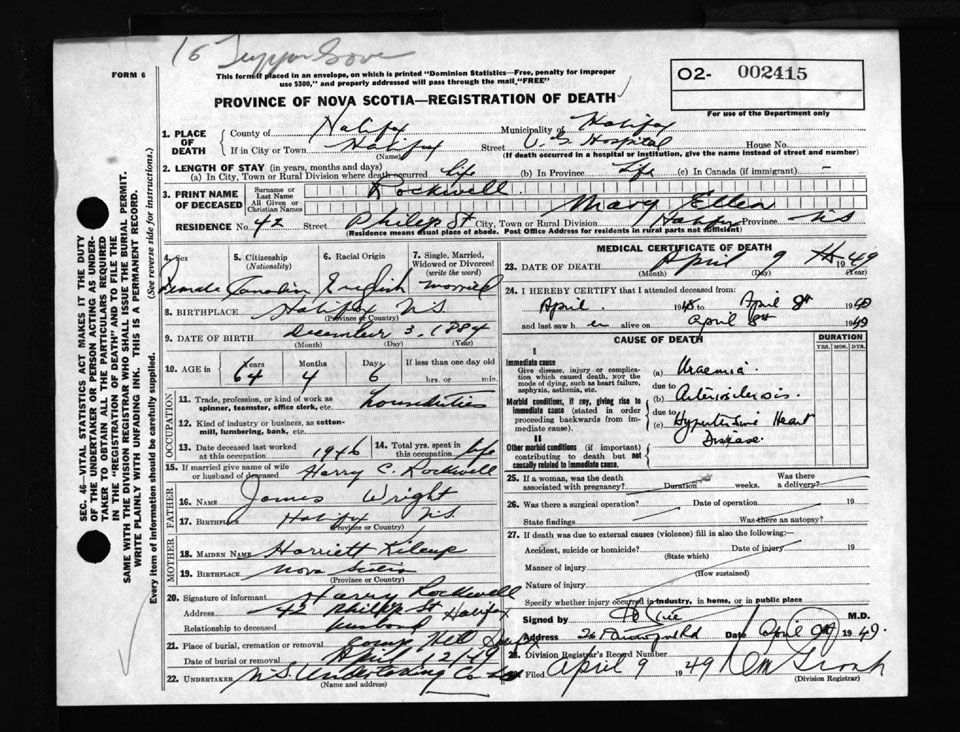 16 Tupper Grove
FORM 6
This form if placed in an envelope, on which is printed "Dominion Statistics—Free, penalty for improper
use $300," and properly addressed will pass through the mail "FREE"
O2- 002415
For use of the Department only
PROVINCE OF NOVA SCOTIA—REGISTRATION OF DEATH
1. PLACE OF DEATH
County of Halifax Municipality of Halifax
If in City or Town Halifax Street V. G. Hospital House No.
(Name) (If death occurred in a hospital or institution, give the name instead of street and number)
2. LENGTH OF STAY (in years, months and days)
(a) In City, Town or Rural Division where death occurred life (b) In Province Life (c) In Canada (if immigrant) -
3. PRINT NAME OF DECEASED
Surname or Last Name Rockwell
All Given or Christian Names Mary Ellen
RESIDENCE No. 42 Street Philip St City, Town or Rural Division Halifax Province N S
(Residence means usual place of abode. Post Office Address for residents in rural parts not sufficient)
4. Sex 5. Citizenship (Nationality) 6. Racial Origin 7. Single, Married, Widowed or Divorced (write the word)
Female Canadian English married
8. BIRTHPLACE Halifax N S
(Province or Country)
9. DATE OF BIRTH December 3, 1884
(Month) (Day) (Year)
10. AGE in Years Months Days If less than one day old
64 4 6 hrs. or min.
OCCUPATION
11. Trade, profession, or kind of work as spinner, teamster, office clerk, etc. housduties
12. Kind of industry or business, as cotton-mill, lumbering, bank, etc.
13. Date deceased last worked at this occupation 1946 14. Total yrs. spent in this occupation life
15. If married give name of wife or husband of deceased Harry C. Rockwell
FATHER
16. NAME James Wright
17. BIRTHPLACE Halifax N.S.
(Province or Country)
MOTHER
18. MAIDEN NAME Harriett Kilcup
19. BIRTHPLACE Nova Scotia
(Province or Country)
20. Signature of informant Harry Rockwell
Address 42 Philip St Halifax
Relationship to deceased husband
21. Place of burial, cremation or removal Camp Hill
Date of burial or removal April 12/49
22. UNDERTAKER N.S. Undertaking Co
(Name and address)
MEDICAL CERTIFICATE OF DEATH
23. DATE OF DEATH April 9 th 1949
(Month) (Day) (Year)
24. I HEREBY CERTIFY that I attended deceased from:
April 1948 to April 8th 1949
and last saw h er alive on April 8th 1949
CAUSE OF DEATH DURATION
YRS. MOS. DYS.
I
Immediate cause
Give disease, injury or complication which caused death, NOT the mode of dying, such as heart failure, asphyxia, asthenia, etc.
(a) Uraemia
due to
Morbid conditions, if any, giving rise to immediate cause (stated in order proceeding backwards from immediate cause).
Arteriosclerosis
due to
(c) Hypertensive Heart Disease
II
Other morbid conditions (if important) contributing to death but not causally related to immediate cause.
25. If a woman, was the death associated with pregnancy? Duration weeks. Was there a delivery?
26. Was there a surgical operation? Date of operation 19
State findings Was there an autopsy?
27. If death was due to external causes (violence) fill in also the following:—
Accident, suicide or homicide? Date of injury 19
(State which)
Manner of injury
(How sustained)
Nature of injury
Specify whether injury occurred in industry, in home, or in public place
Signed by M.D.
Address Rd Date April 9th 1949.
28. Division Registrar's Record Number
Filed April 9 1949
(Division Registrar)
SEC. 46—VITAL STATISTICS ACT MAKES IT THE DUTY
OF THE UNDERTAKER OR PERSON ACTING AS UNDER-
TAKER TO OBTAIN ALL THE PARTICULARS REQUIRED
IN THE "REGISTRATION OF DEATH" AND TO FILE THE
SAME WITH THE DIVISION REGISTRAR WHO SHALL ISSUE THE BURIAL PERMIT.
WRITE PLAINLY WITH UNFADING INK. THIS IS A PERMANENT RECORD.
Every item of information should be carefully supplied. (See reverse side for instructions.)